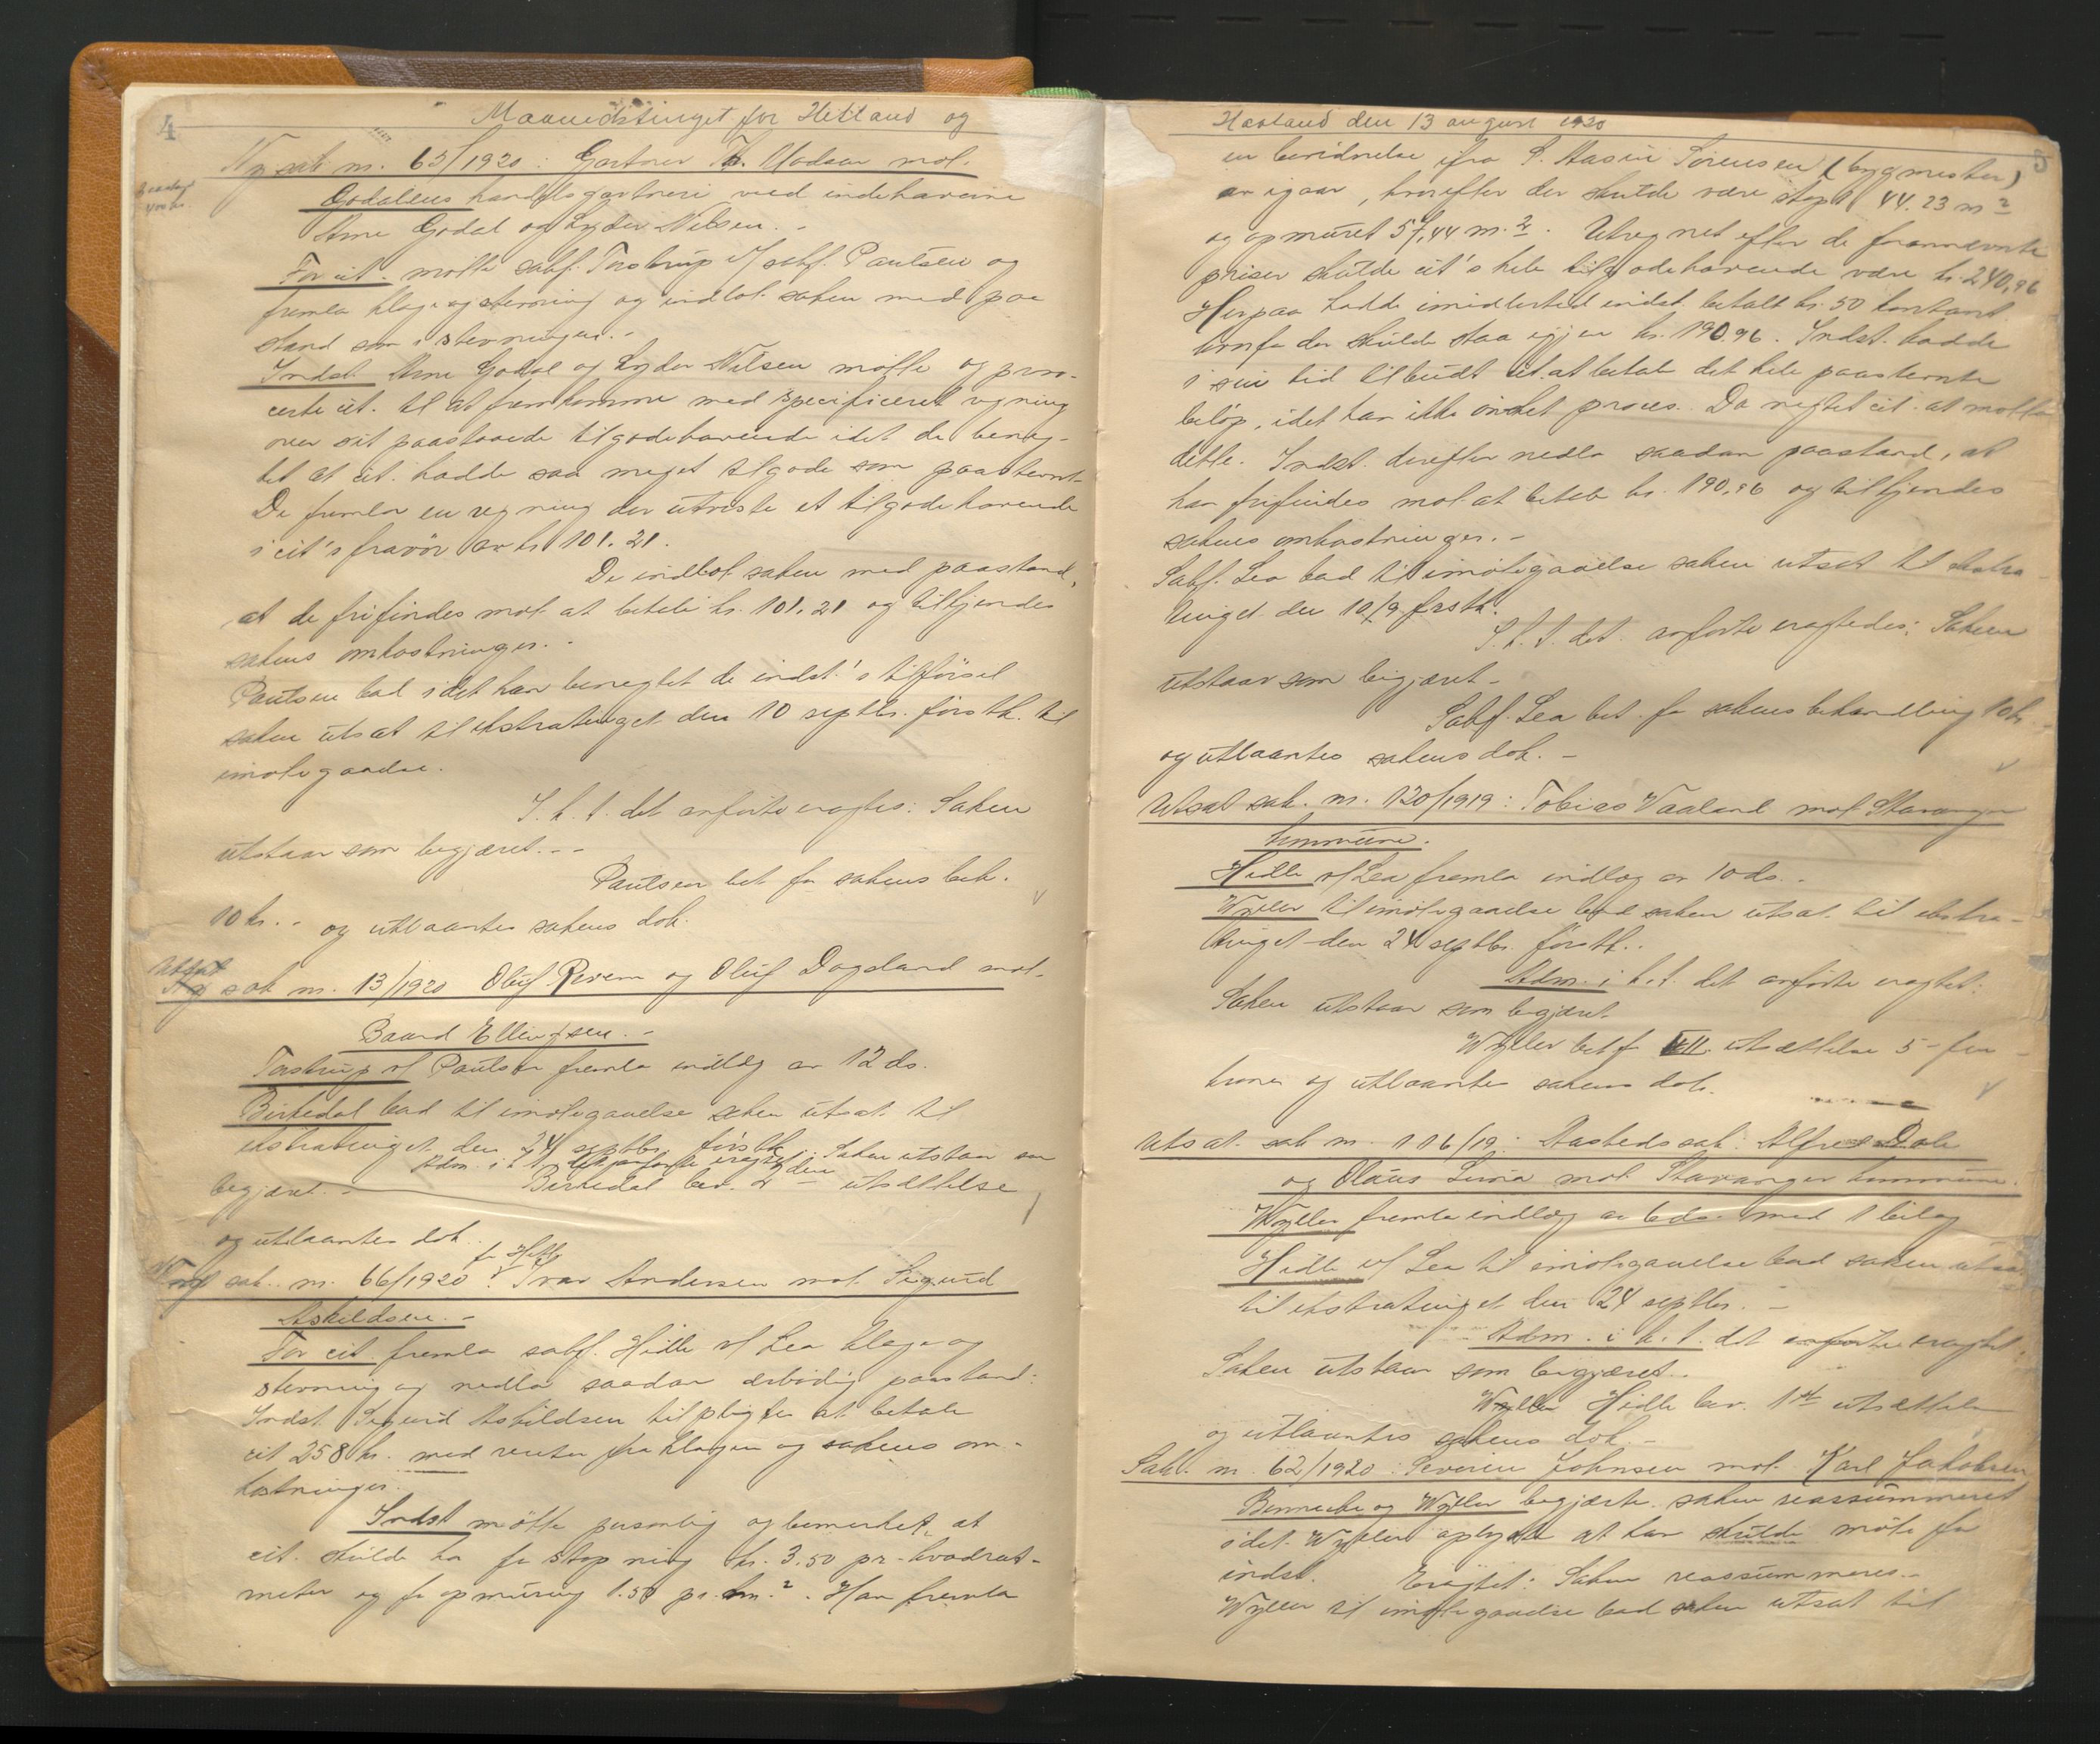 4
Maanedstinget for Hetland og
Ny sak nr. 65/1920: Gartner Th. Madsen mot
Godalens handelsgartneri ved indehaverne
Arne Godal og Lyder Nilsen. -
For cit. møtte sakf. Torstrup v/ sakf. Paulsen og
fremla klage og stevning og indlot saken med paa
stand som i stevningen. -
Indst. Arne Godal og Lyder Nilsen møtte og provo-
certe cit. til at fremkomme med specificeret regning
over sit paastaaede tilgodehavende idet de beneg-
tet at cit. hadde saa meget tilgode som paastevnt.
De fremla en regning der utviste et tilgodehavende
i cit's favør av kr 101.21.
De indlot saken med paastand,
at de frifindes mot at betale kr. 101.21 og tilkjendes
sakens omkostninger. -
Paulsen bad idet han benegtet de indst.'s tilførsel
saken utsat til ekstratinget den 10 septbr. førstk. til
imøtegaaelse.
I. h. t. det anførte eragtes: Saken
utstaar som begjæret. - -
Paulsen bet. for sakens beh.
10 kr. - og utlaantes sakens dok.
Utsat sak nr. 13/1920 Oluf Revem og Oluf Dagsland mot
Baard Ellingsen. -
Torstrup v/ Paulsen fremla indlæg av 12 ds.
Birkedal bad til imøtegaaelse saken utsat til
ekstratinget den 24 septbr. førstk.
Adm. i h. t. det anførte eragtet: Saken utstaar som
begjæret. - Birkedal bev. 2den utsættelse
og utlaantes dok.
for Hetl.
Ny sak nr. 66/1920: Ivar Andersen mot Sigurd
Askildsen. -
For cit. fremla sakf. Hidle v/ Lea klage og
stevning og nedla saadan ærbødig paastand:
Indst. Sigurd Askildsen tilpligtes at betale
cit 258 kr. med renter fra klagen og sakens om-
kostninger.
Indst møtte personlig og bemerket, at
cit. skulde ha for støpning kr. 3.50 pr. kvadrat-
meter og for opmuring 1.50 pr. m.². Han fremla
5
Høiland den 13 august 1920
en bevidnelse ifra S. Sørensen (bygmester)
av igaar, hvorefter der skulde være støpt 44.23 m²
og opmuret 57,44 m.². Utregnet efter de forannevnte
priser skulde cit's hele tilgodehavende være kr. 240,96
Herpaa hadde imidlertid indst. betalt kr. 50 kontant
hvorfor der skulde staa igjen kr. 190.96. Indst. hadde
i sin tid tilbudt cit. at betale det hele paastevnte
beløp, idet han ikke ønsket proces. Da negtet cit. at motta
dette. Indst. derefter nedla saadan paastand, at
han frifindes mot at betale kr. 190,96 og tilkjendes
sakens omkostninger. -
Sakf. Lea bad til imøtegaaelse saken utsat til ekstra
tinget den 10/9 førstk.
I. h. t. det anførte eragtedes: Saken
utstaar som begjæret -
Sakf. Lea bet. for sakens behandling 10 kr. -
og utlaantes sakens dok. -
Utsat sak. nr. 120/1919: Tobias Vaaland mot Stavanger
kommune.
Hidle v/ Lea fremla indlæg av 10 ds. -
Wyller til imøtegaaelse bad saken utsat til ekstra-
tinget den 24 septbr. førstk..
Adm. i h. t. det anførte eragtet:
Saken utstaar som begjæret
Wyller bet for utsættelse 5 - fem -
kroner og utlaantes sakens dok.
Utsat sak nr. 116/19: Aastedssak: Alfred Dale
og Olaus Lima mot Stavanger kommune.
Wyller fremla indlæg av 6 ds. med 1 bilag
Hidle v/ Lea til imøtegaaelse bad saken utsat
til ekstratinget den 24 septbr. -
Adm. i h. t. det anførte eragtet:
Saken utstaar som begjæret..
Wyller Hidle bev. 1ste utsættelse
og utlaantes sakens dok. -
Sak. nr. 62/1920: Severin Johnsen mot Karl Jakobsen
Bennecke og Wyller begjærte saken reassummeret
idet Wyller oplyste at han skulde møte for
indst. Eragtet: Saken reassummeres. -
Wyller til imøtegaaelse bad saken utsat til